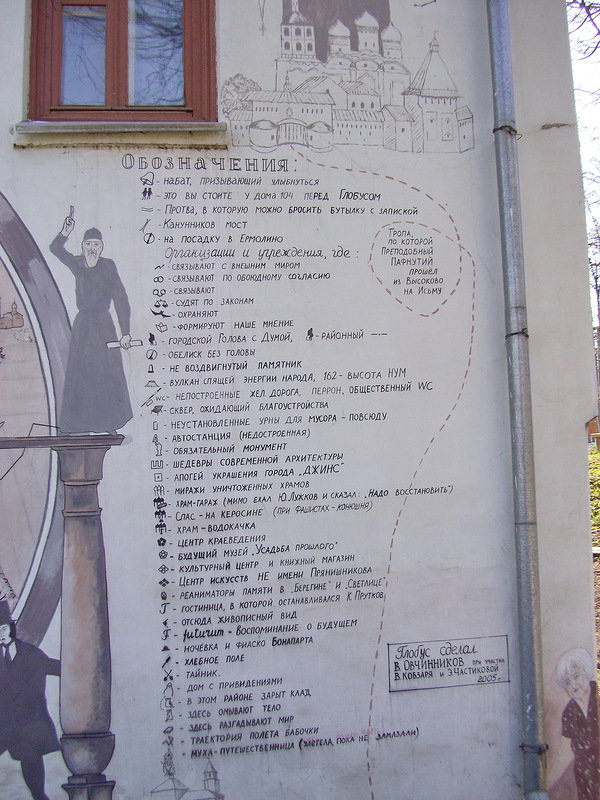 ОБОЗНАЧЕНИЯ:
- НАБАТ, ПРИЗЫВАЮЩИЙ УЛЫБНУТЬСЯ
- ЭТО ВЫ СТОИТЕ У ДОМА 104 ПЕРЕД ГЛОБУСОМ
- ПРОТВА, В КОТОРУЮ МОЖНО БРОСИТЬ БУТЫЛКУ С ЗАПИСКОЙ
- КАНУННИКОВ МОСТ
- НА ПОСАДКУ В ЕРМОЛИНО
ОРГАНИЗАЦИИ И УЧРЕЖДЕНИЯ, ГДЕ:
- СВЯЗЫВАЮТ С ВНЕШНИМ МИРОМ
- СВЯЗЫВАЮТ ПО ОБОЮДНОМУ СОГЛАСИЮ
- СВЯЗЫВАЮТ
- СУДЯТ ПО ЗАКОНАМ
- ОХРАНЯЮТ
- ФОРМИРУЮТ НАШЕ МНЕНИЕ
- ГОРОДСКОЙ ГОЛОВА С ДУМОЙ, - РАЙОННЫЙ -·-
- ОБЕЛИСК БЕЗ ГОЛОВЫ
- НЕ ВОЗДВИГНУТЫЙ ПАМЯТНИК
- ВУЛКАН СПЯЩЕЙ ЭНЕРГИИ НАРОДА, 162 - ВЫСОТА НУМ
WC - НЕПОСТРОЕННЫЕ ЖЕЛ. ДОРОГА, ПЕРРОН, ОБЩЕСТВЕННЫЙ WC
- СКВЕР, ОЖИДАЮЩИЙ БЛАГОУСТРОЙСТВА
- НЕУСТАНОВЛЕННЫЕ УРНЫ ДЛЯ МУСОРА - ПОВСЮДУ
- АВТОСТАНЦИЯ (НЕДОСТРОЕННАЯ)
- ОБЯЗАТЕЛЬНЫЙ МОНУМЕНТ
- ШЕДЕВРЫ СОВРЕМЕННОЙ АРХИТЕКТУРЫ
- АПОГЕЙ УКРАШЕНИЯ ГОРОДА „ДЖИНС"
- МИРАЖИ УНИЧТОЖЕННЫХ ХРАМОВ
- ХРАМ-ГАРАЖ (МИМО ЕХАЛ Ю.ЛУЖКОВ И СКАЗАЛ: „НАДО ВОССТАНОВИТЬ")
- СПАС - НА КЕРОСИНЕ (ПРИ ФАШИСТАХ - КОНЮШНЯ)
- ХРАМ - ВОДОКАЧКА
- ЦЕНТР КРАЕВЕДЕНИЯ
- БУДУЩИЙ МУЗЕЙ „УСАДЬБА ПРОШЛОГО"
- КУЛЬТУРНЫЙ ЦЕНТР И КНИЖНЫЙ МАГАЗИН
- ЦЕНТР ИСКУССТВ НЕ ИМЕНИ ПРЯНИШНИКОВА
- РЕАНИМАТОРЫ ПАМЯТИ В „БЕРЕГИНЕ" И „СВЕТЛИЦЕ"
Г - ГОСТИНИЦА, В КОТОРОЙ ОСТАНАВЛИВАЛСЯ К. ПРУТКОВ
- ОТСЮДА ЖИВОПИСНЫЙ ВИД
F - futurum - ВОСПОМИНАНИЕ О БУДУЩЕМ
- НОЧЁВКА И ФИАСКО БОНАПАРТА
- ХЛЕБНОЕ ПОЛЕ
- ТАЙНИК
- ДОМ С ПРИВИДЕНИЯМИ
- В ЭТОМ РАЙОНЕ ЗАРЫТ КЛАД
- ЗДЕСЬ ОМЫВАЮТ ТЕЛО
- ЗДЕСЬ РАЗГАДЫВАЮТ МИР
- ТРАЕКТОРИЯ ПОЛЕТА БАБОЧКИ
- МУХА - ПУТЕШЕСТВЕННИЦА (УЛЕТЕЛА, ПОКА НЕ ЗАМАЗАЛИ)
ТРОПА,
ПО КОТОРОЙ
ПРЕПОДОБНЫЙ
ПАФНУТИЙ
ПРОШЁЛ
ИЗ ВЫСОКОВО
НА ИСЬМУ
ГЛОБУС СДЕЛАЛ
В. ОВЧИННИКОВ ПРИ УЧАСТИИ
В. КОБЗАРЯ И Э. ЧАСТИКОВОЙ
2005г.